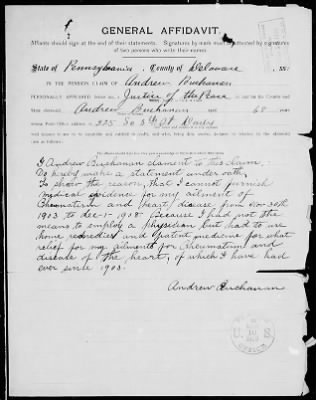 GENERAL AFFIDAVIT.
Affiants should sign at the end of their statements. Signatures by mark must be attested by signatures
of two persons who write their names.
State of Pennsylvania, County of Delaware, ss:
IN THE PENSION CLAIM OF Andrew Buchanan
PERSONALLY APPEARED before me, Justice of the Peace in and for the County and
State aforesaid, Andrew Buchanan aged 68 years
whose Post-Office address is 225 So 5th St Darby
I Andrew Buchanan clament to this claim,
Do hereby make a statement under oath,
To show the reason, that I cannot furnish
medical evidence for my ailment of
Rheumatism and heart disease from Nov 30th
1903 to Dec-1-1908 Because I had not the
means to employ a physician but had to use
home remedies and patent medicine for what
relief for my ailments for Rheumatism and
disease of the heart, of which I have had
ever since 1903.
Andrew Buchanan
U S